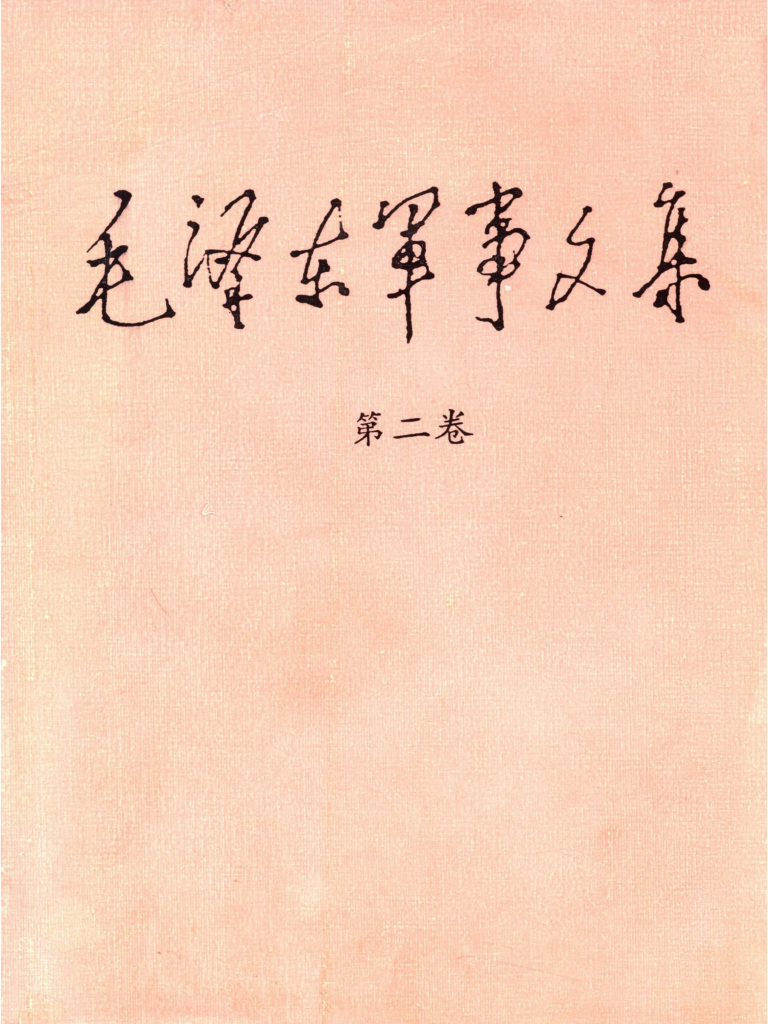 毛泽东军事文集
第二卷